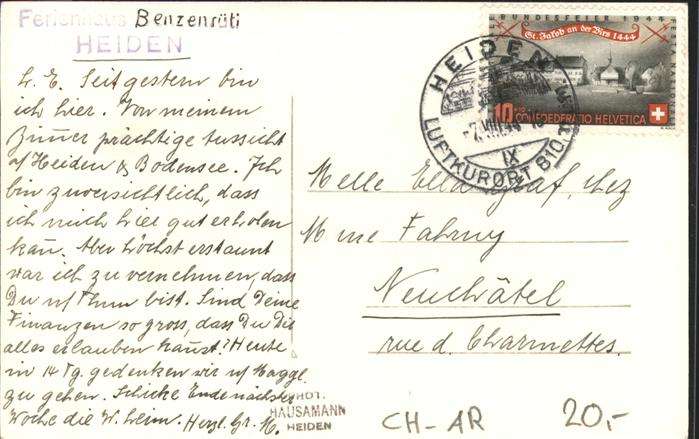 Ferienhaus Benzenrüti
HEIDEN
L. E. Seit gestern bin
ich hier. Von meinem
Zimmer prächtige Aussicht
a/Heiden & Bodensee. Ich
bin zuversichtlich, dass
ich mich hier gut erholen
kann. Aber höchst erstaunt
war ich zu vernehmen, dass
Du n/Thun bist. Sind Deine
Finanzen so gross, dass Du Dir
alles erlauben kannst? Heute
in 14 Tg. gedenken wir
zu gehen. Schicke Ende nächster
Woche die W. heim. Herzl. Gr. M.
PHOT.
HAUSAMANN
HEIDEN
BUNDESFEIER 1944
St. Jakob an der Birs 1444
10 CONFOEDERATIO HELVETICA
HEIDEN
VIII
IX
LUFTKURORT 810 m
Melle Ella Graf, chez
Mme Fahrny
Neuchâtel
rue d. Charmettes.
CH-AR 20,-